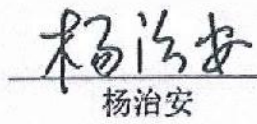 杨治安
杨治安